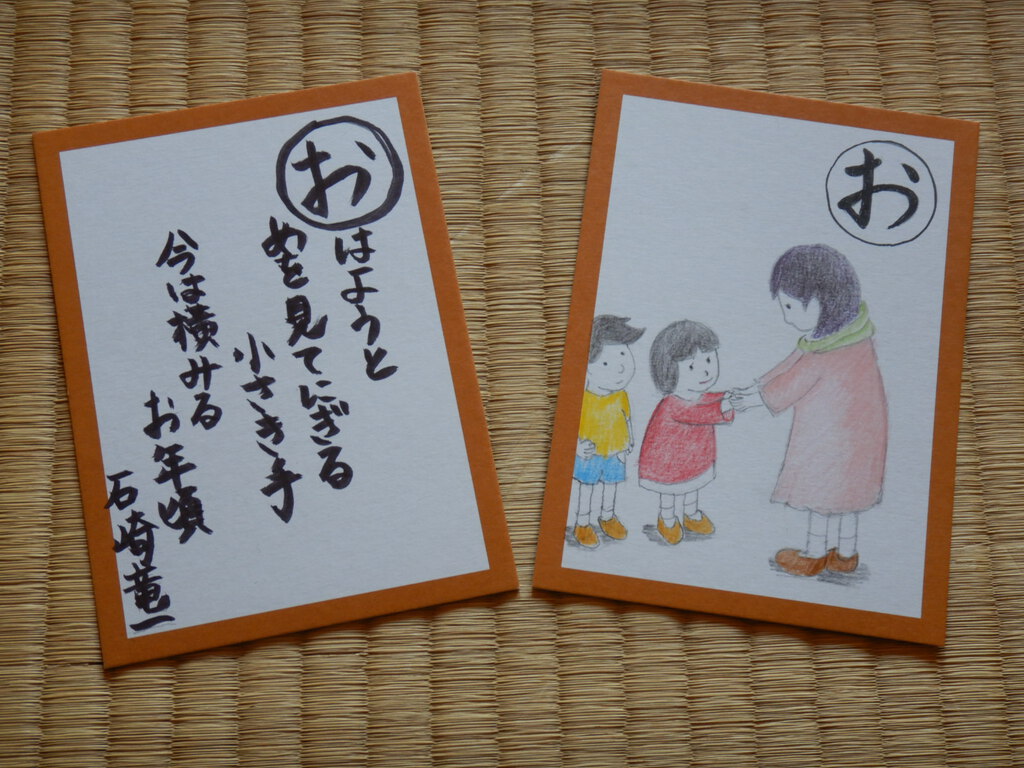 お
はようと
めを見てにぎる
小さき手
今は横みる
お年頃
石崎竜一
お